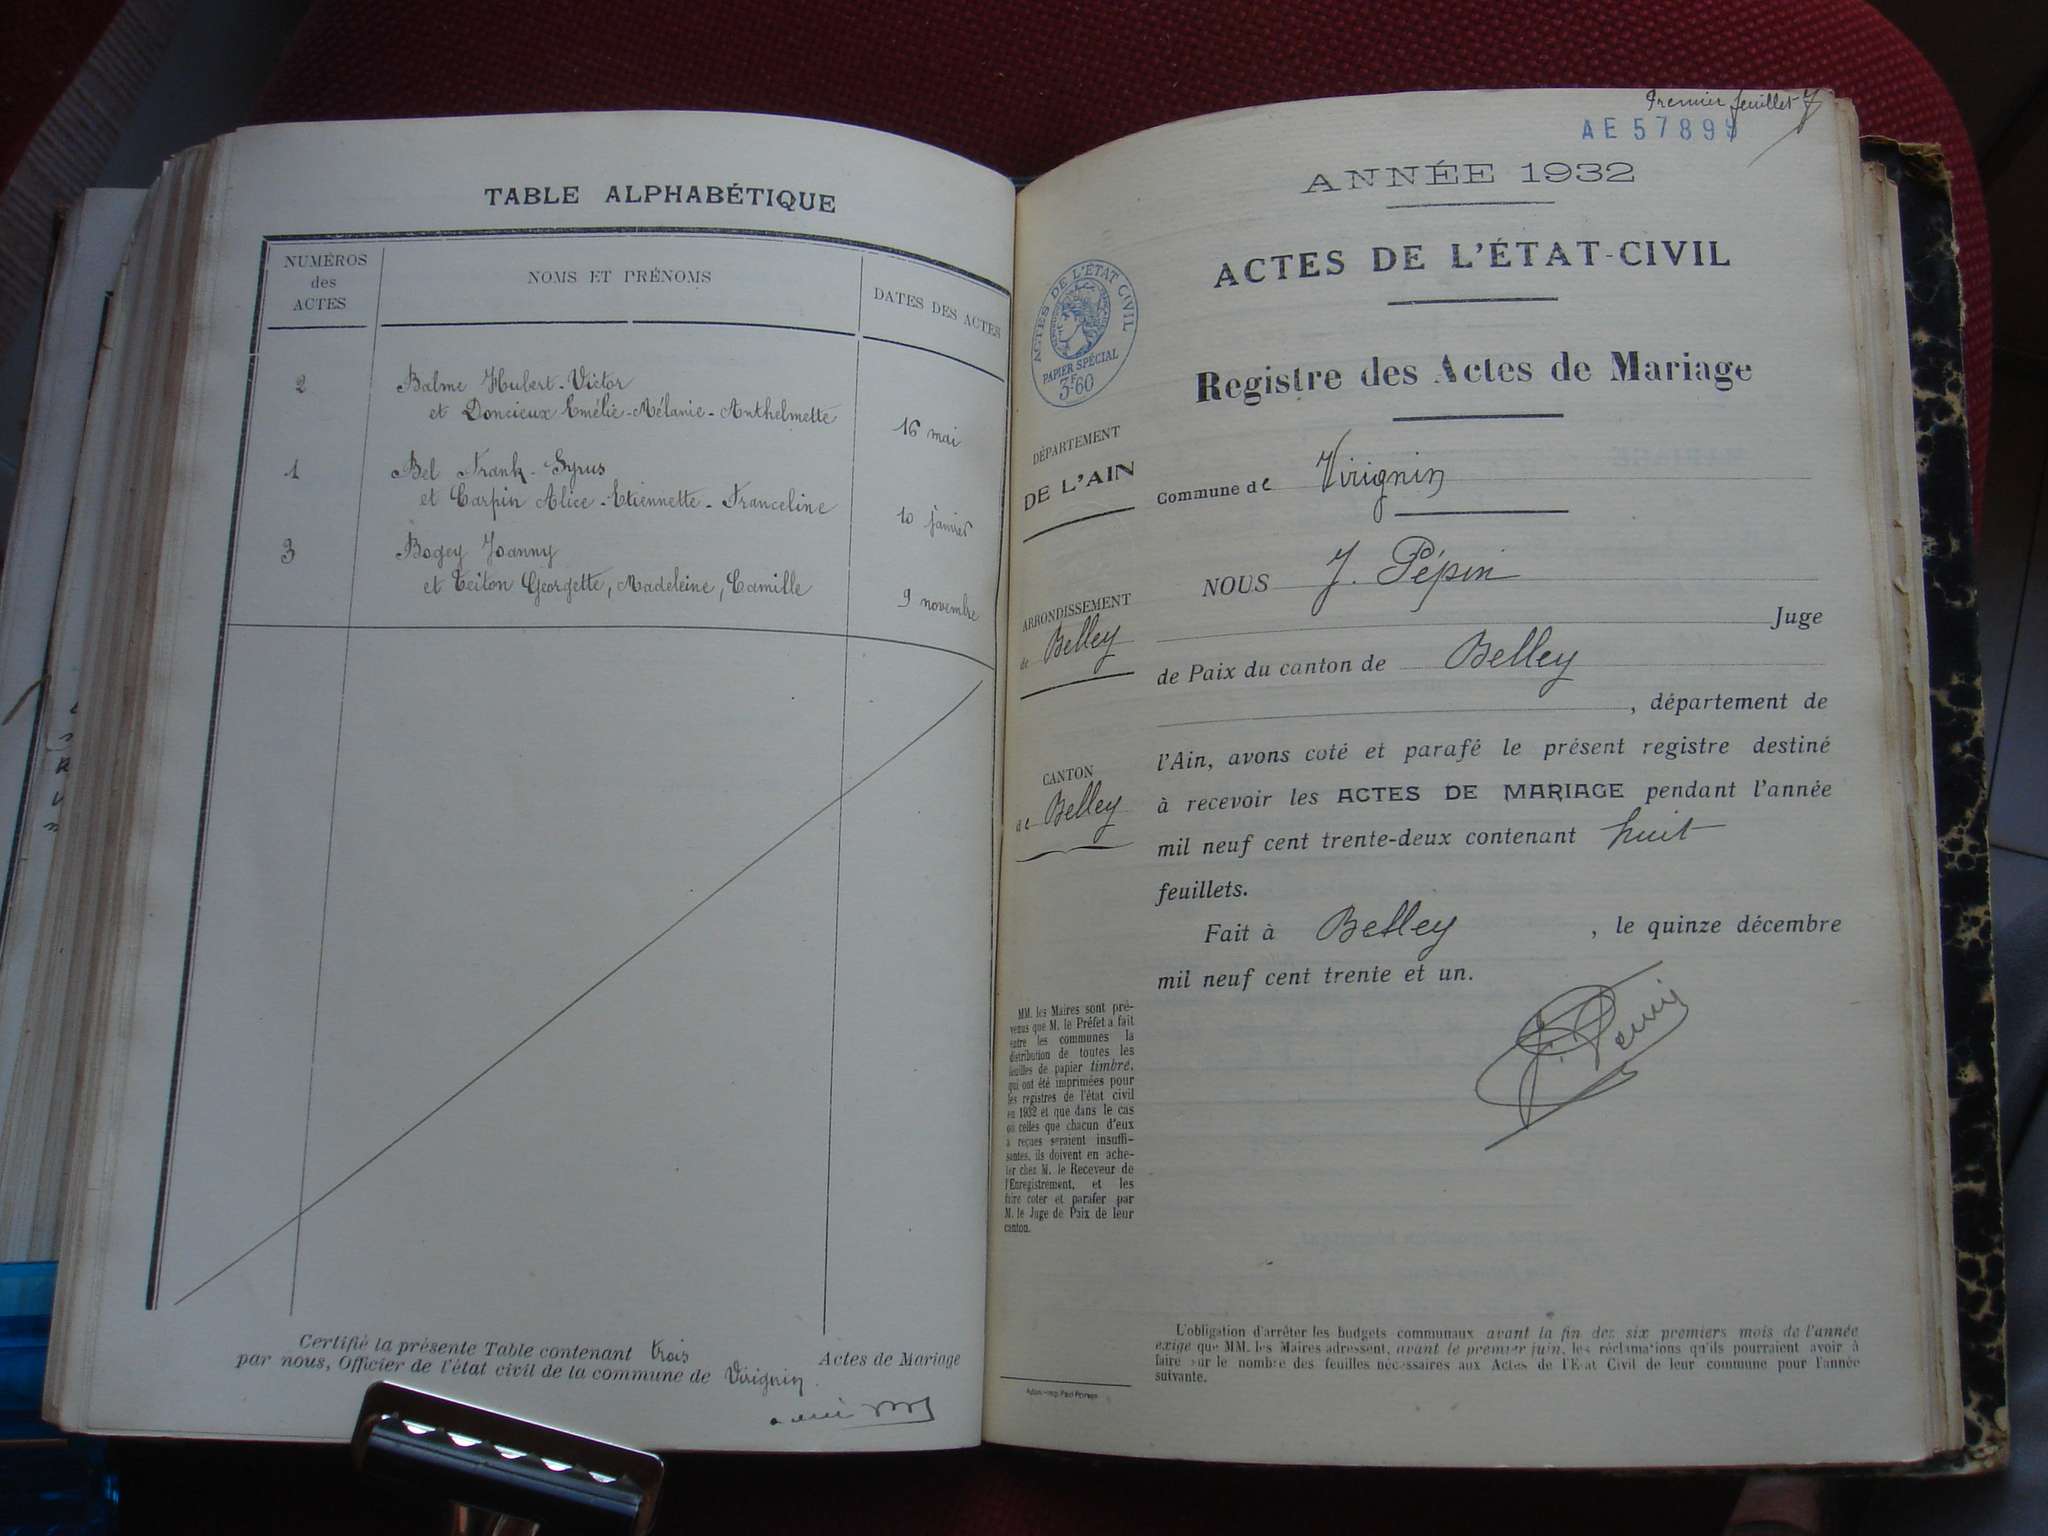 TABLE ALPHABÉTIQUE
NUMÉROS
des
ACTES
NOMS ET PRÉNOMS
DATES DES ACTES
2
Balme Hubert-Victor
et Doncieux Emélie-Mélanie-Anthelmette
16 mai
1
Bel Frank-Syrus
et Carpin Alice-Etiennette-Franceline
10 janvier
3
Bogey Joanny
et Teiton Georgette, Madeleine, Camille
9 novembre
Certifié la présente Table contenant trois Actes de Mariage
par nous, Officier de l'état civil de la commune de Virignin
Premier feuillet
AE 5789
ANNÉE 1932
ACTES DE L'ÉTAT-CIVIL
ACTES DE L'ÉTAT CIVIL
PAPIER SPÉCIAL
3F60
Registre des Actes de Mariage
DÉPARTEMENT
DE L'AIN
Commune de Virignin
NOUS J. Pépin
ARRONDISSEMENT
de Belley
Juge
de Paix du canton de Belley
, département de
l'Ain, avons coté et parafé le présent registre destiné
CANTON
de Belley
à recevoir les ACTES DE MARIAGE pendant l'année
mil neuf cent trente-deux contenant huit
feuillets.
Fait à Belley , le quinze décembre
mil neuf cent trente et un.
J. Pépin
MM. les Maires sont pré-
venus que M. le Préfet a fait
entre les communes la
distribution de toutes les
feuilles de papier timbré,
qui ont été imprimées pour
les registres de l'état civil
en 1932 et que dans le cas
où celles que chacun d'eux
a reçues seraient insuffi-
santes, ils doivent en ache-
ter chez M. le Receveur de
l'Enregistrement, et les
faire coter et parafer par
M. le Juge de Paix de leur
canton.
L'obligation d'arrêter les budgets communaux avant la fin des six premiers mois de l'année
exige que MM. les Maires adressent, avant le premier juin, les réclamations qu'ils pourraient avoir à
faire sur le nombre des feuilles nécessaires aux Actes de l'Etat Civil de leur commune pour l'année
suivante.